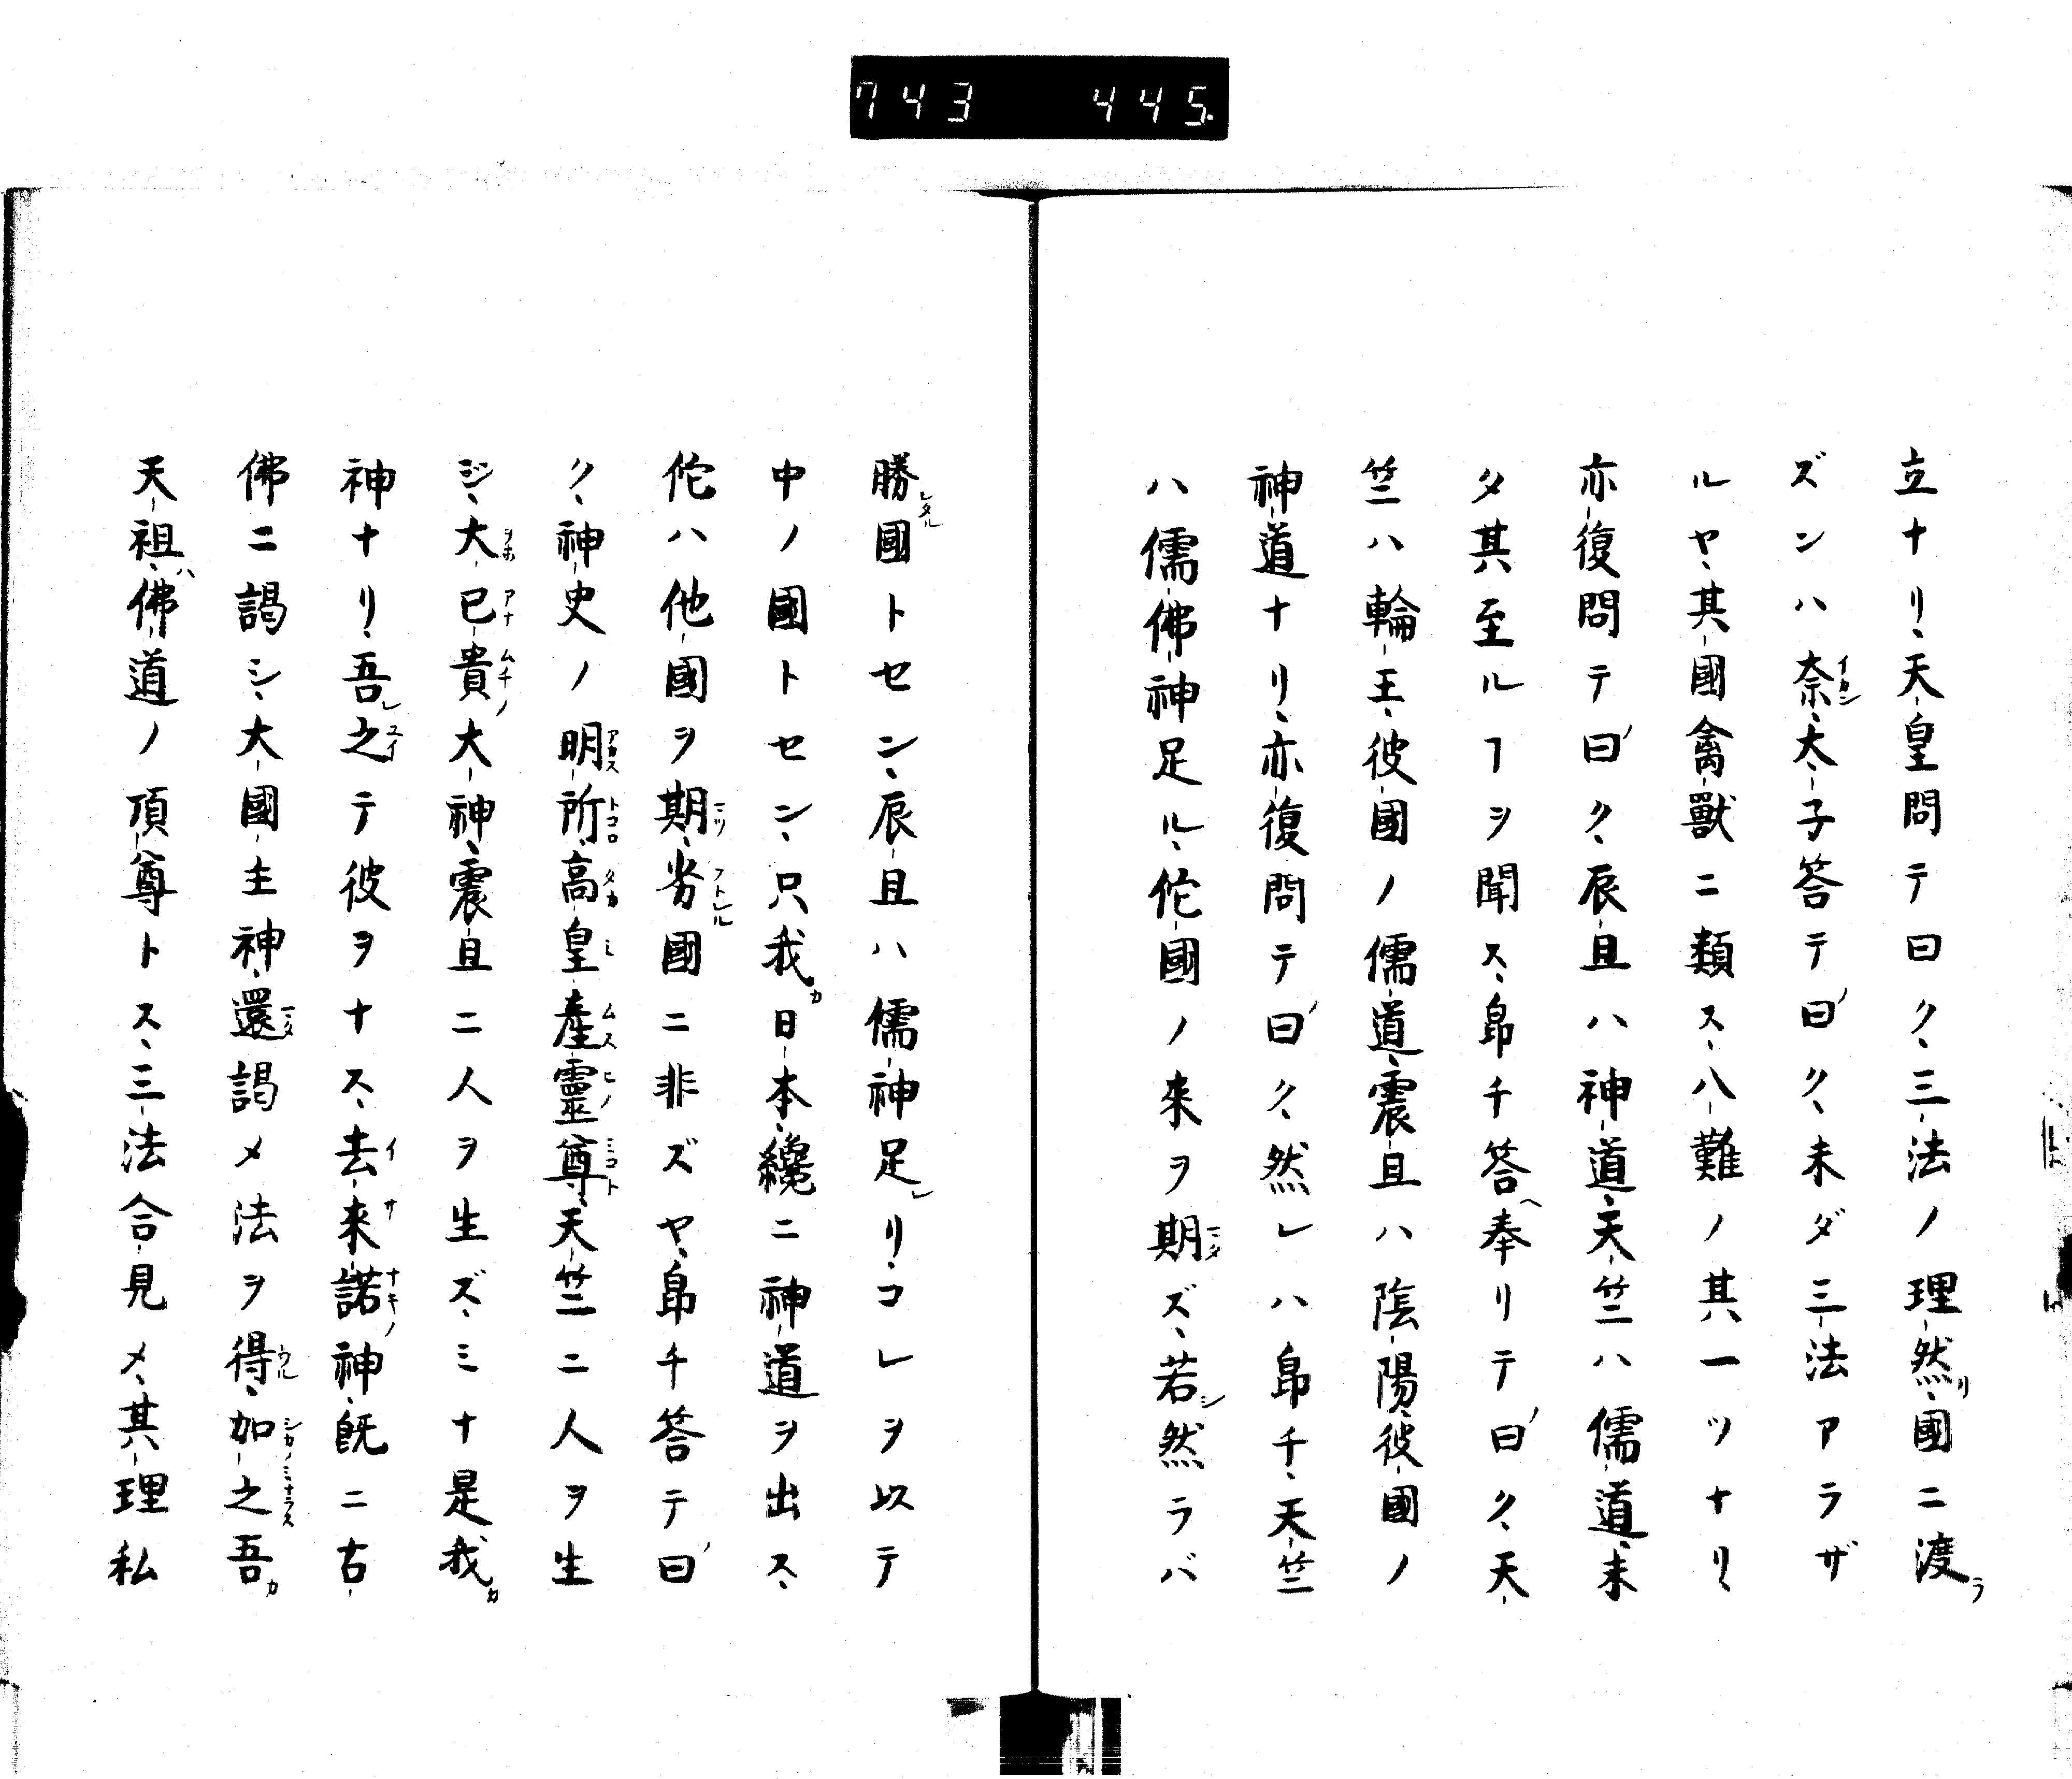 743 445
立ナリ、天皇問テ曰ク、三法ノ理然、國ニ渡
ズンハ奈、太子答テ曰ク、未ダ三法アラザ
ルヤ、其國禽獸ニ類ス、八難ノ其一ツナリ、
亦復問テ曰ク、辰旦ハ神道、天竺ハ儒道、未
タ其至ルヿヲ聞ス、皍チ答奉リテ曰ク、天
竺ハ輪王、彼國ノ儒道、震旦ハ陰陽、彼國ノ
神道ナリ、亦復問テ曰ク、然レハ皍チ、天竺
ハ儒佛神足ル、佗國ノ来ヲ期ズ、若然ラバ
勝國トセン、辰旦ハ儒神足リ、コレヲ以テ
中ノ國トセン、只我日本、纔ニ神道ヲ出ス、
佗ハ他國ヲ期、劣國ニ非ズヤ、皍チ答テ曰
ク、神史ノ明所、高皇産靈尊、天竺ニ人ヲ生
ジ、大已貴大神、震旦ニ人ヲ生ズ、ミナ是我
神ナリ、吾之テ彼ヲナス、去来諾神、既ニ古
佛ニ謁シ、大國主神、還謁メ法ヲ得、如之吾
天祖、佛道ノ頂尊トス、三法合見メ、其理私